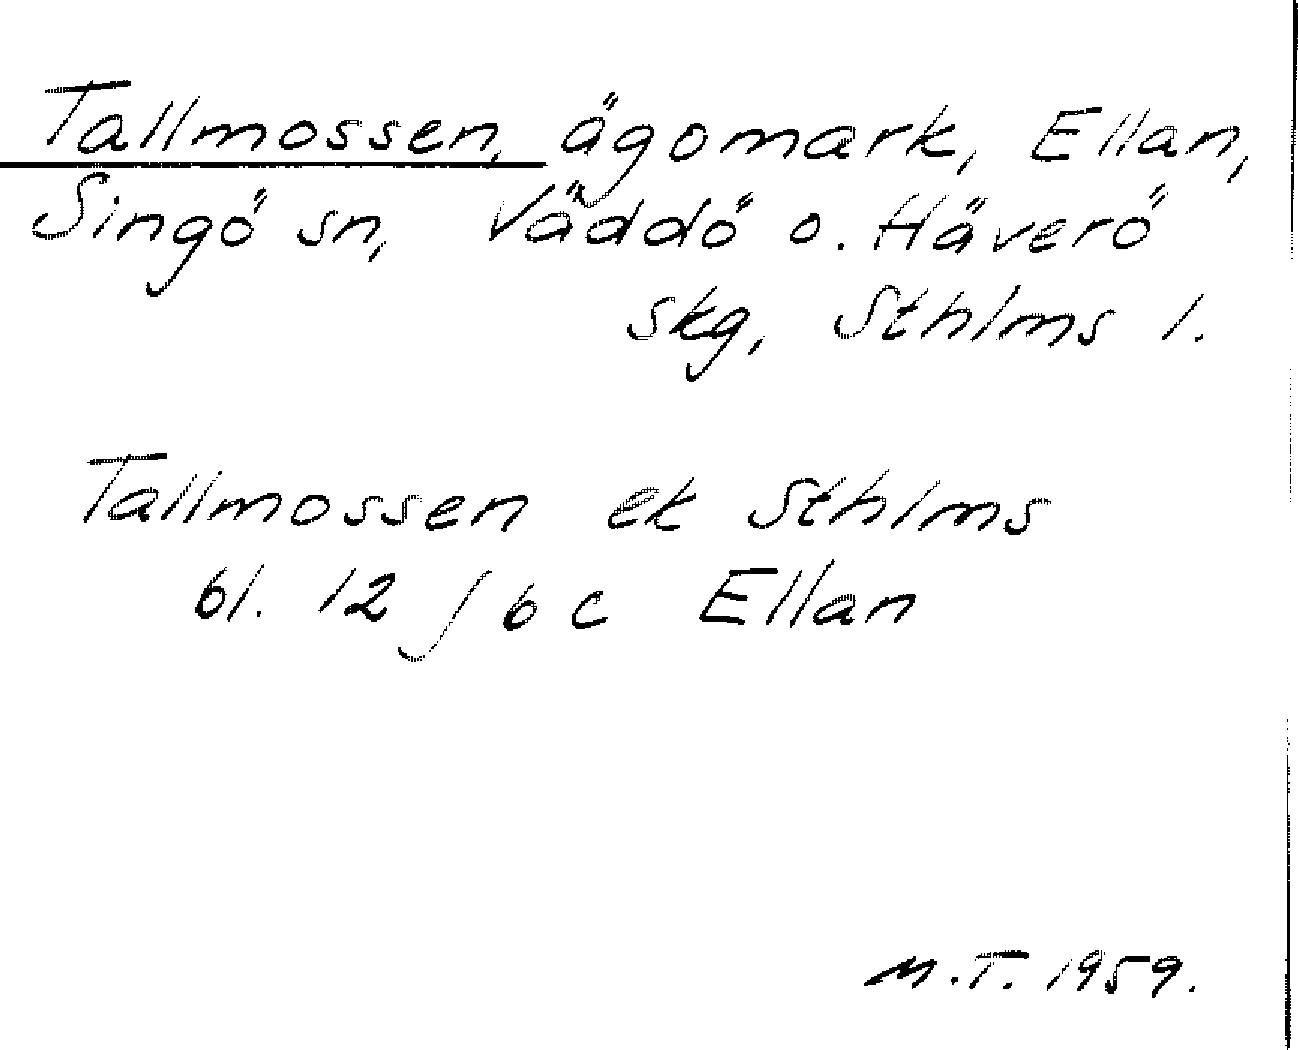 Tallmossen, ägomark, Ellan,
Singö sn, Väddö o. Häverö
skg, Sthlms l.
Tallmossen ek Sthlms
bl. 12 / 6 c Ellan
M.T. 1959.